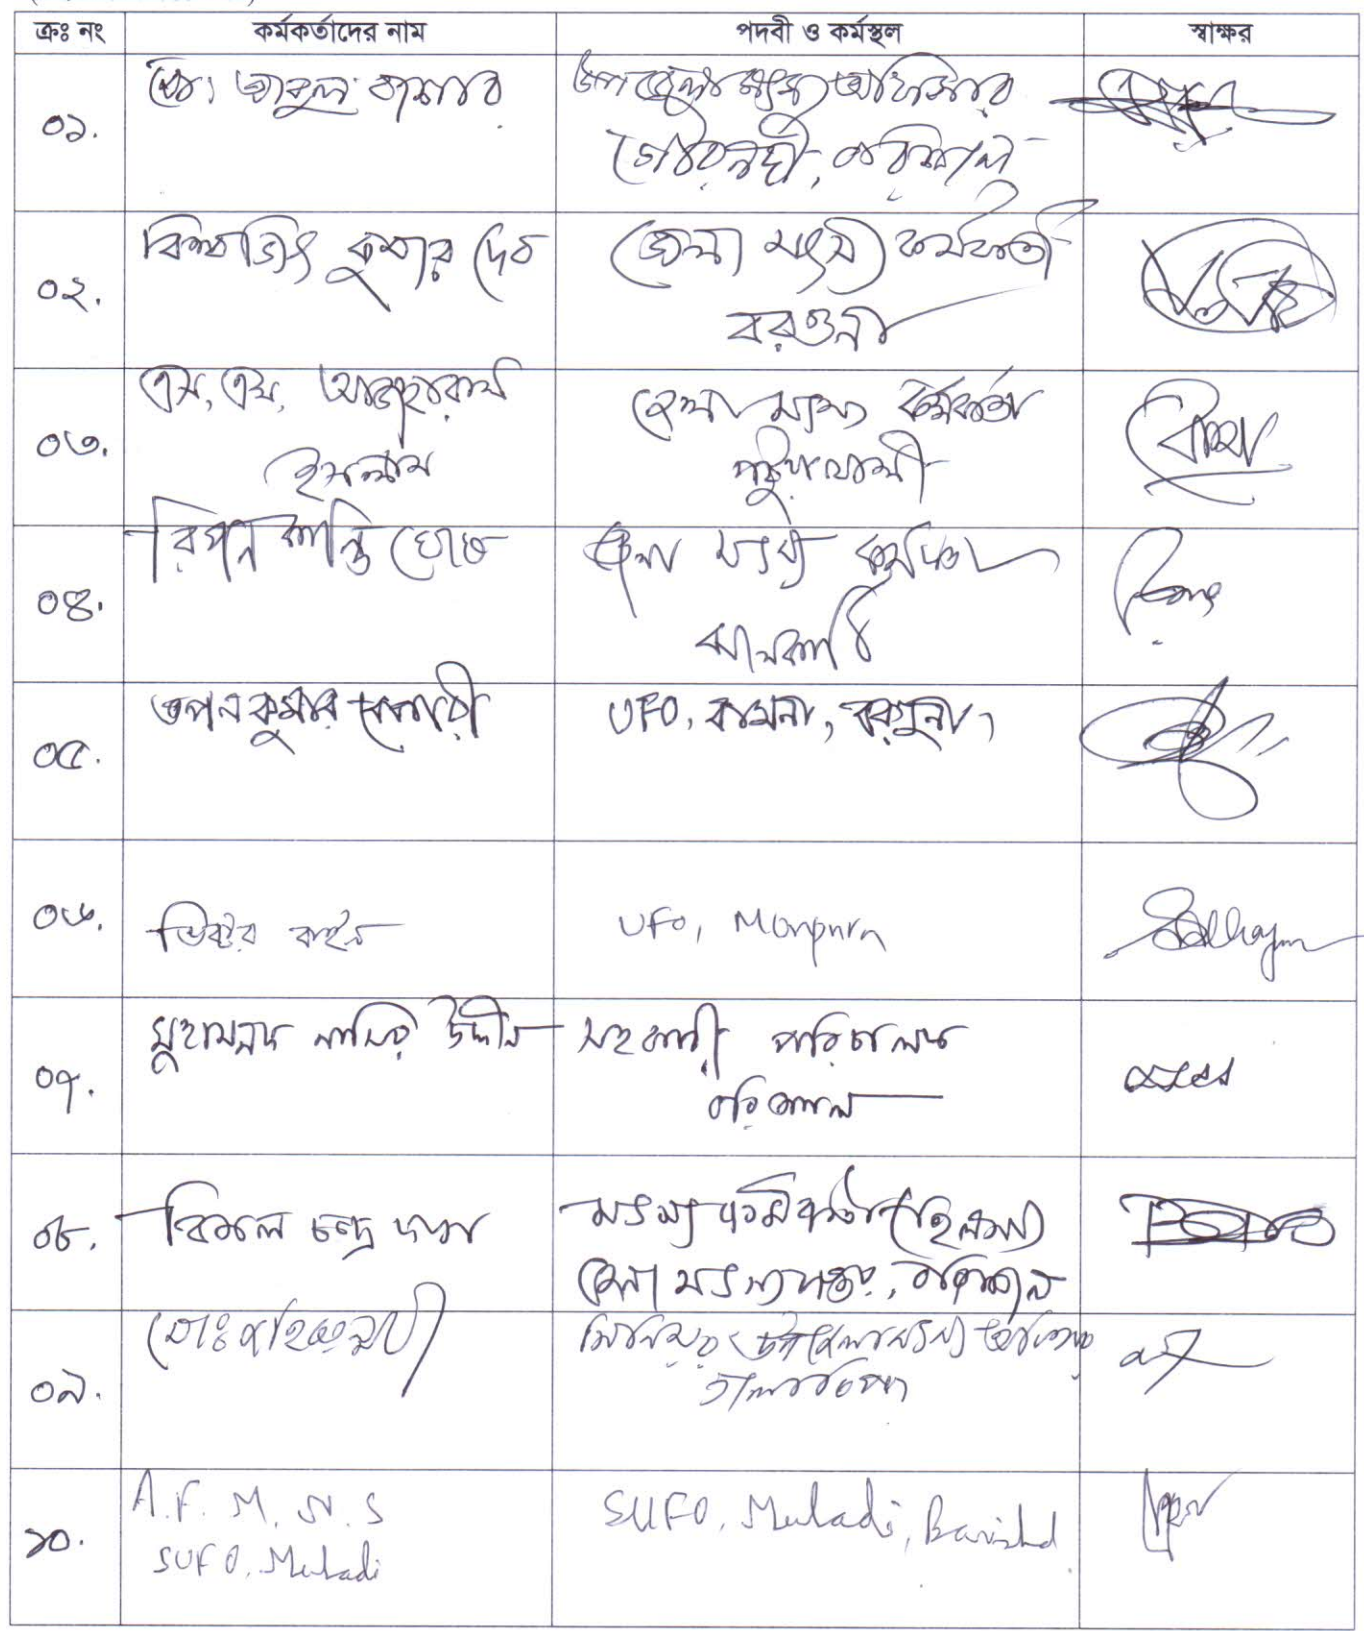 ক্রঃ নং কর্মকর্তাদের নাম পদবী ও কর্মস্থল স্বাক্ষর
০১. মোঃ আবুল বাশার উপজেলা মৎস্য অফিসার
গৌরনদী, বরিশাল
০২. বিশ্বজিৎ কুমার দেব জেলা মৎস্য কর্মকর্তা
বরগুনা
০৩. এস, এম, আজহারুল জেলা মৎস্য কর্মকর্তা
ইসলাম পটুয়াখালী
০৪. রিপন কান্তি ঘোষ জেলা মৎস্য কর্মকর্তা
ঝালকাঠি
০৫. তপন কুমার বেপারী UFO, বামনা, বরগুনা,
০৬. ভিক্টর বাইন UFO, Monpura
০৭. মুহাম্মদ নাসির উদ্দীন সহকারী পরিচালক
বরিশাল
০৮. বিমল চন্দ্র দাস মৎস্য কর্মকর্তা (ইলিশ)
জেলা মৎস্য দপ্তর, বরিশাল
০৯. মোঃ সিনিয়র উপজেলা মৎস্য অফিসার
১০. A.F. M. N. S SUFO, Muladi, Barishal
SUFO, Muladi